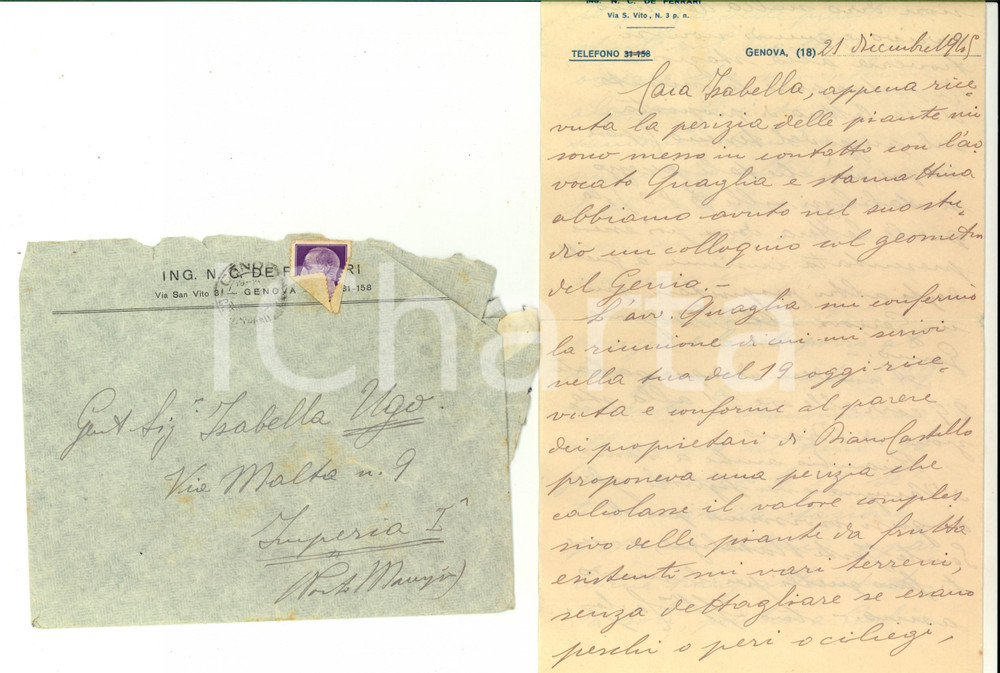 ING. N. C. DE FERRARI
Via San Vito 31 – GENOVA 31-158
GENOVA
Gent Sig.ra Isabella Ugo.
Via Malta n. 9
Imperia I^
(Porto Maurizio)
ING. N. C. DE FERRARI
Via S. Vito, N. 3 p. n.
TELEFONO 31-158
GENOVA, (18) 21 dicembre 1945
Cara Isabella, appena rice-
vuta la perizia delle piante mi
sono messo in contatto con l'av-
vocato Quaglia e stamattina
abbiamo avuto nel suo stu-
dio un colloquio col geometra
del Genio.–
L'avv. Quaglia mi confermò
la riunione di cui mi scrivi
nella tua del 19 oggi rice-
vuta e conforme al parere
dei proprietari di Diano Castello
proponeva una perizia che
calcolasse il valore comples
sivo delle piante da frutta
esistenti sui vari terreni,
senza dettagliare se erano
peschi o peri o ciliegi,
iCharta